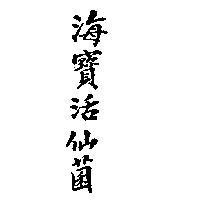 海寶活仙菌